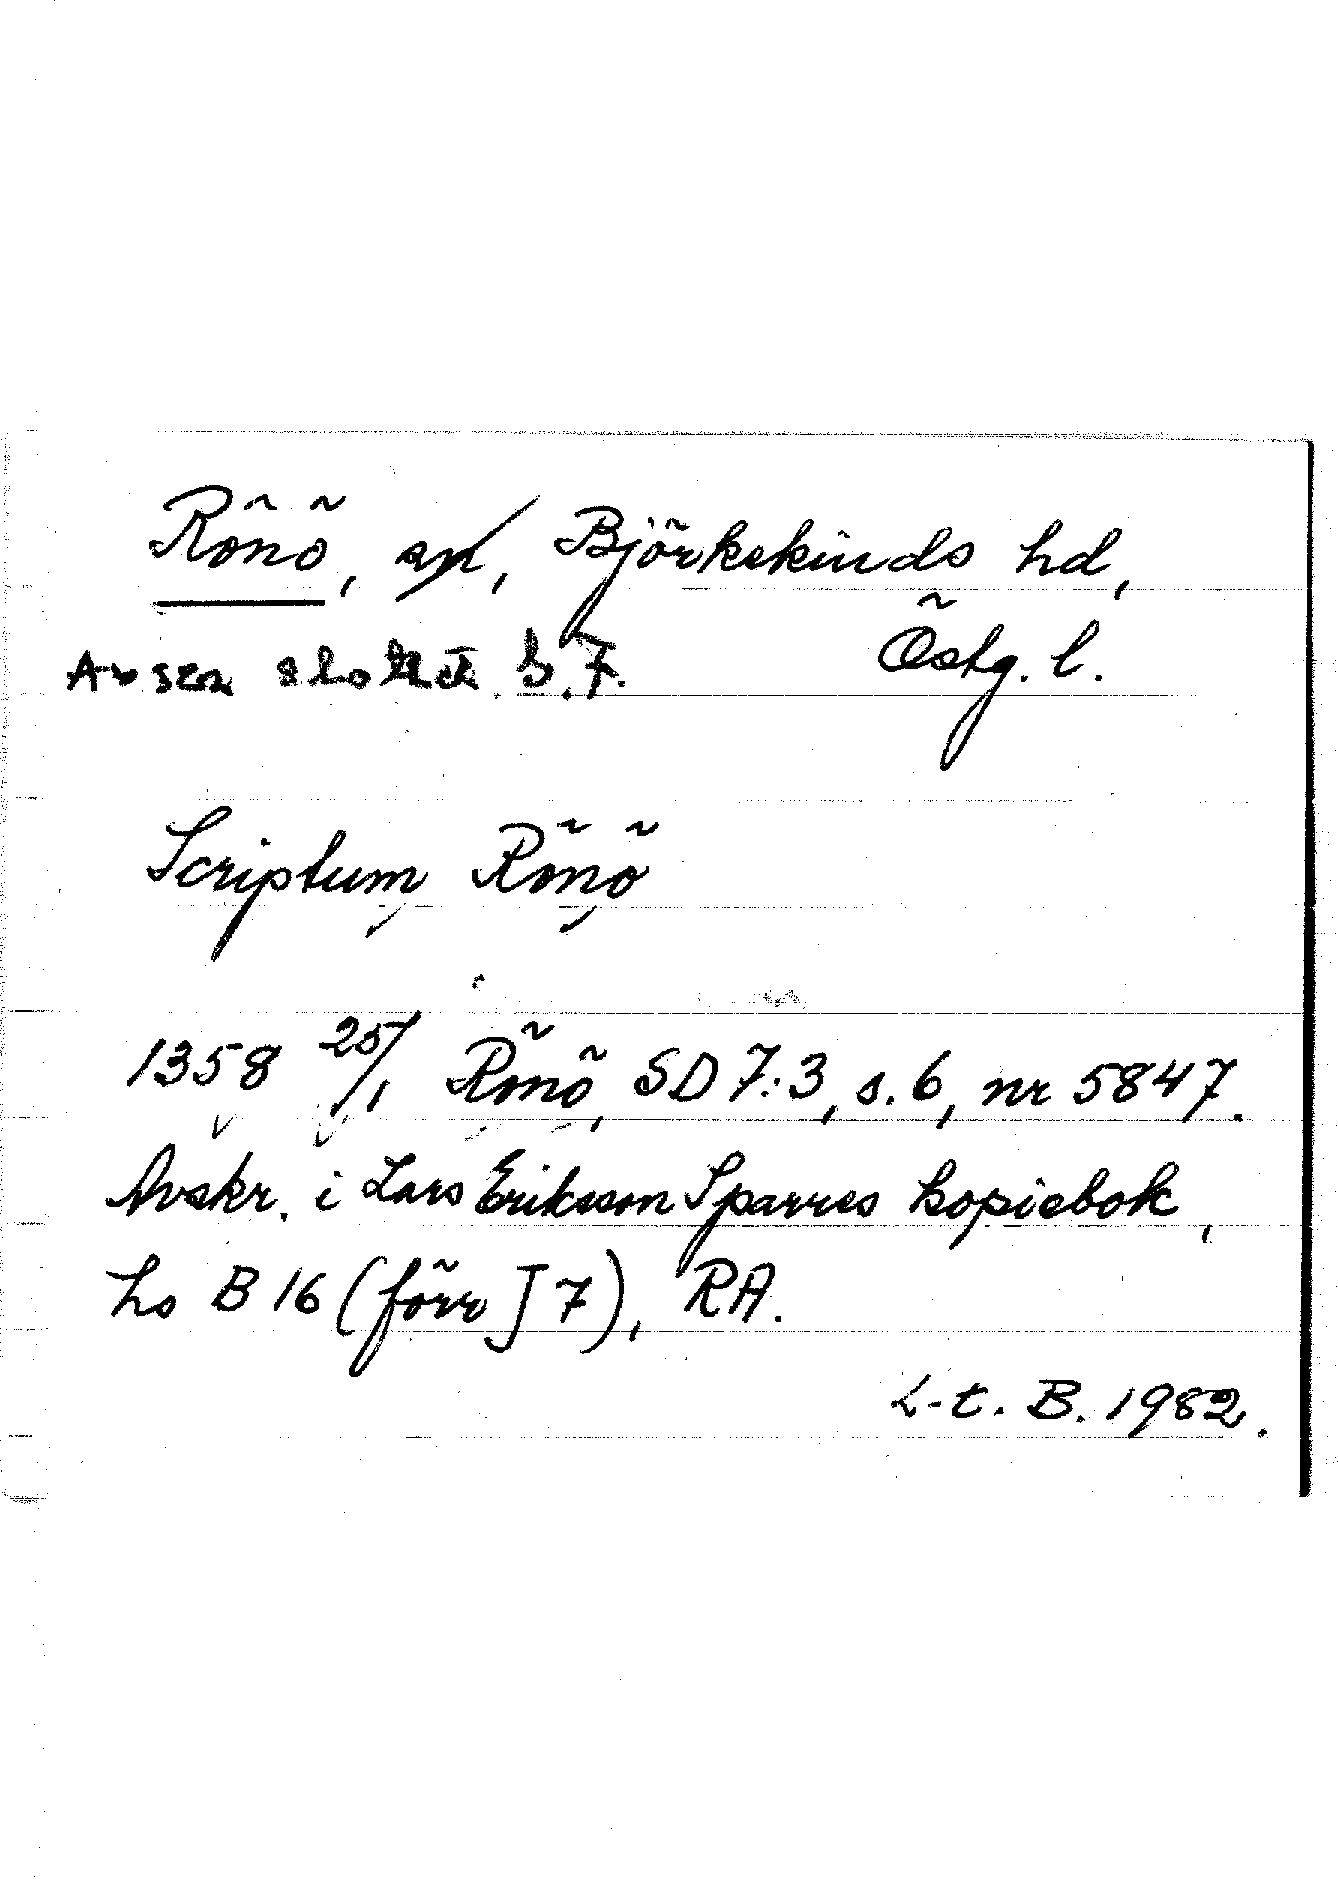 Rönö, sn, Björkekinds hd,
Östg. l.
Avser slottet. S.F.
Scriptum Rönö
1358 25/1 Rönö, SD 7:3, s. 6, nr 5847.
Avskr. i Lars Eriksson Sparres kopiebok,
hs B 16 (förr J 7), RA.
L-t. B. 1982.